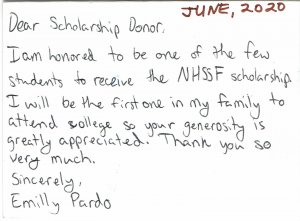 JUNE, 2020
Dear Scholarship Donor,
I am honored to be one of the few
students to receive the NHSSF scholarship.
I will be the first one in my family to
attend college so your generosity is
greatly appreciated. Thank you so
very much.
Sincerely,
Emilly Pardo